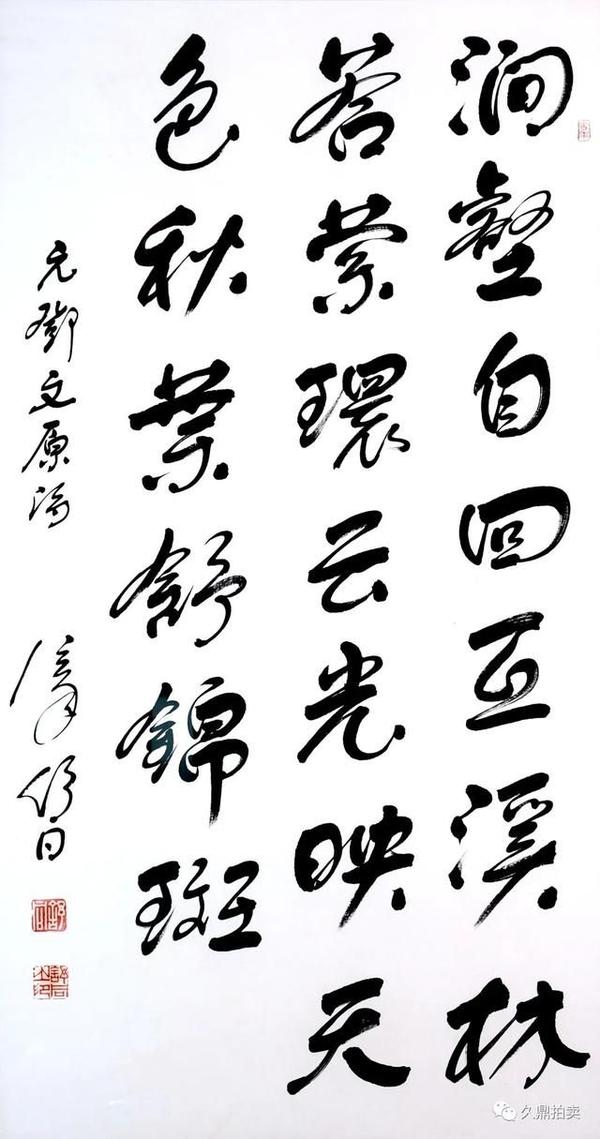 涧壑自回互溪林
若萦环云光映天
色秋叶舒锦斑
元鄧文原詩
久鼎拍卖